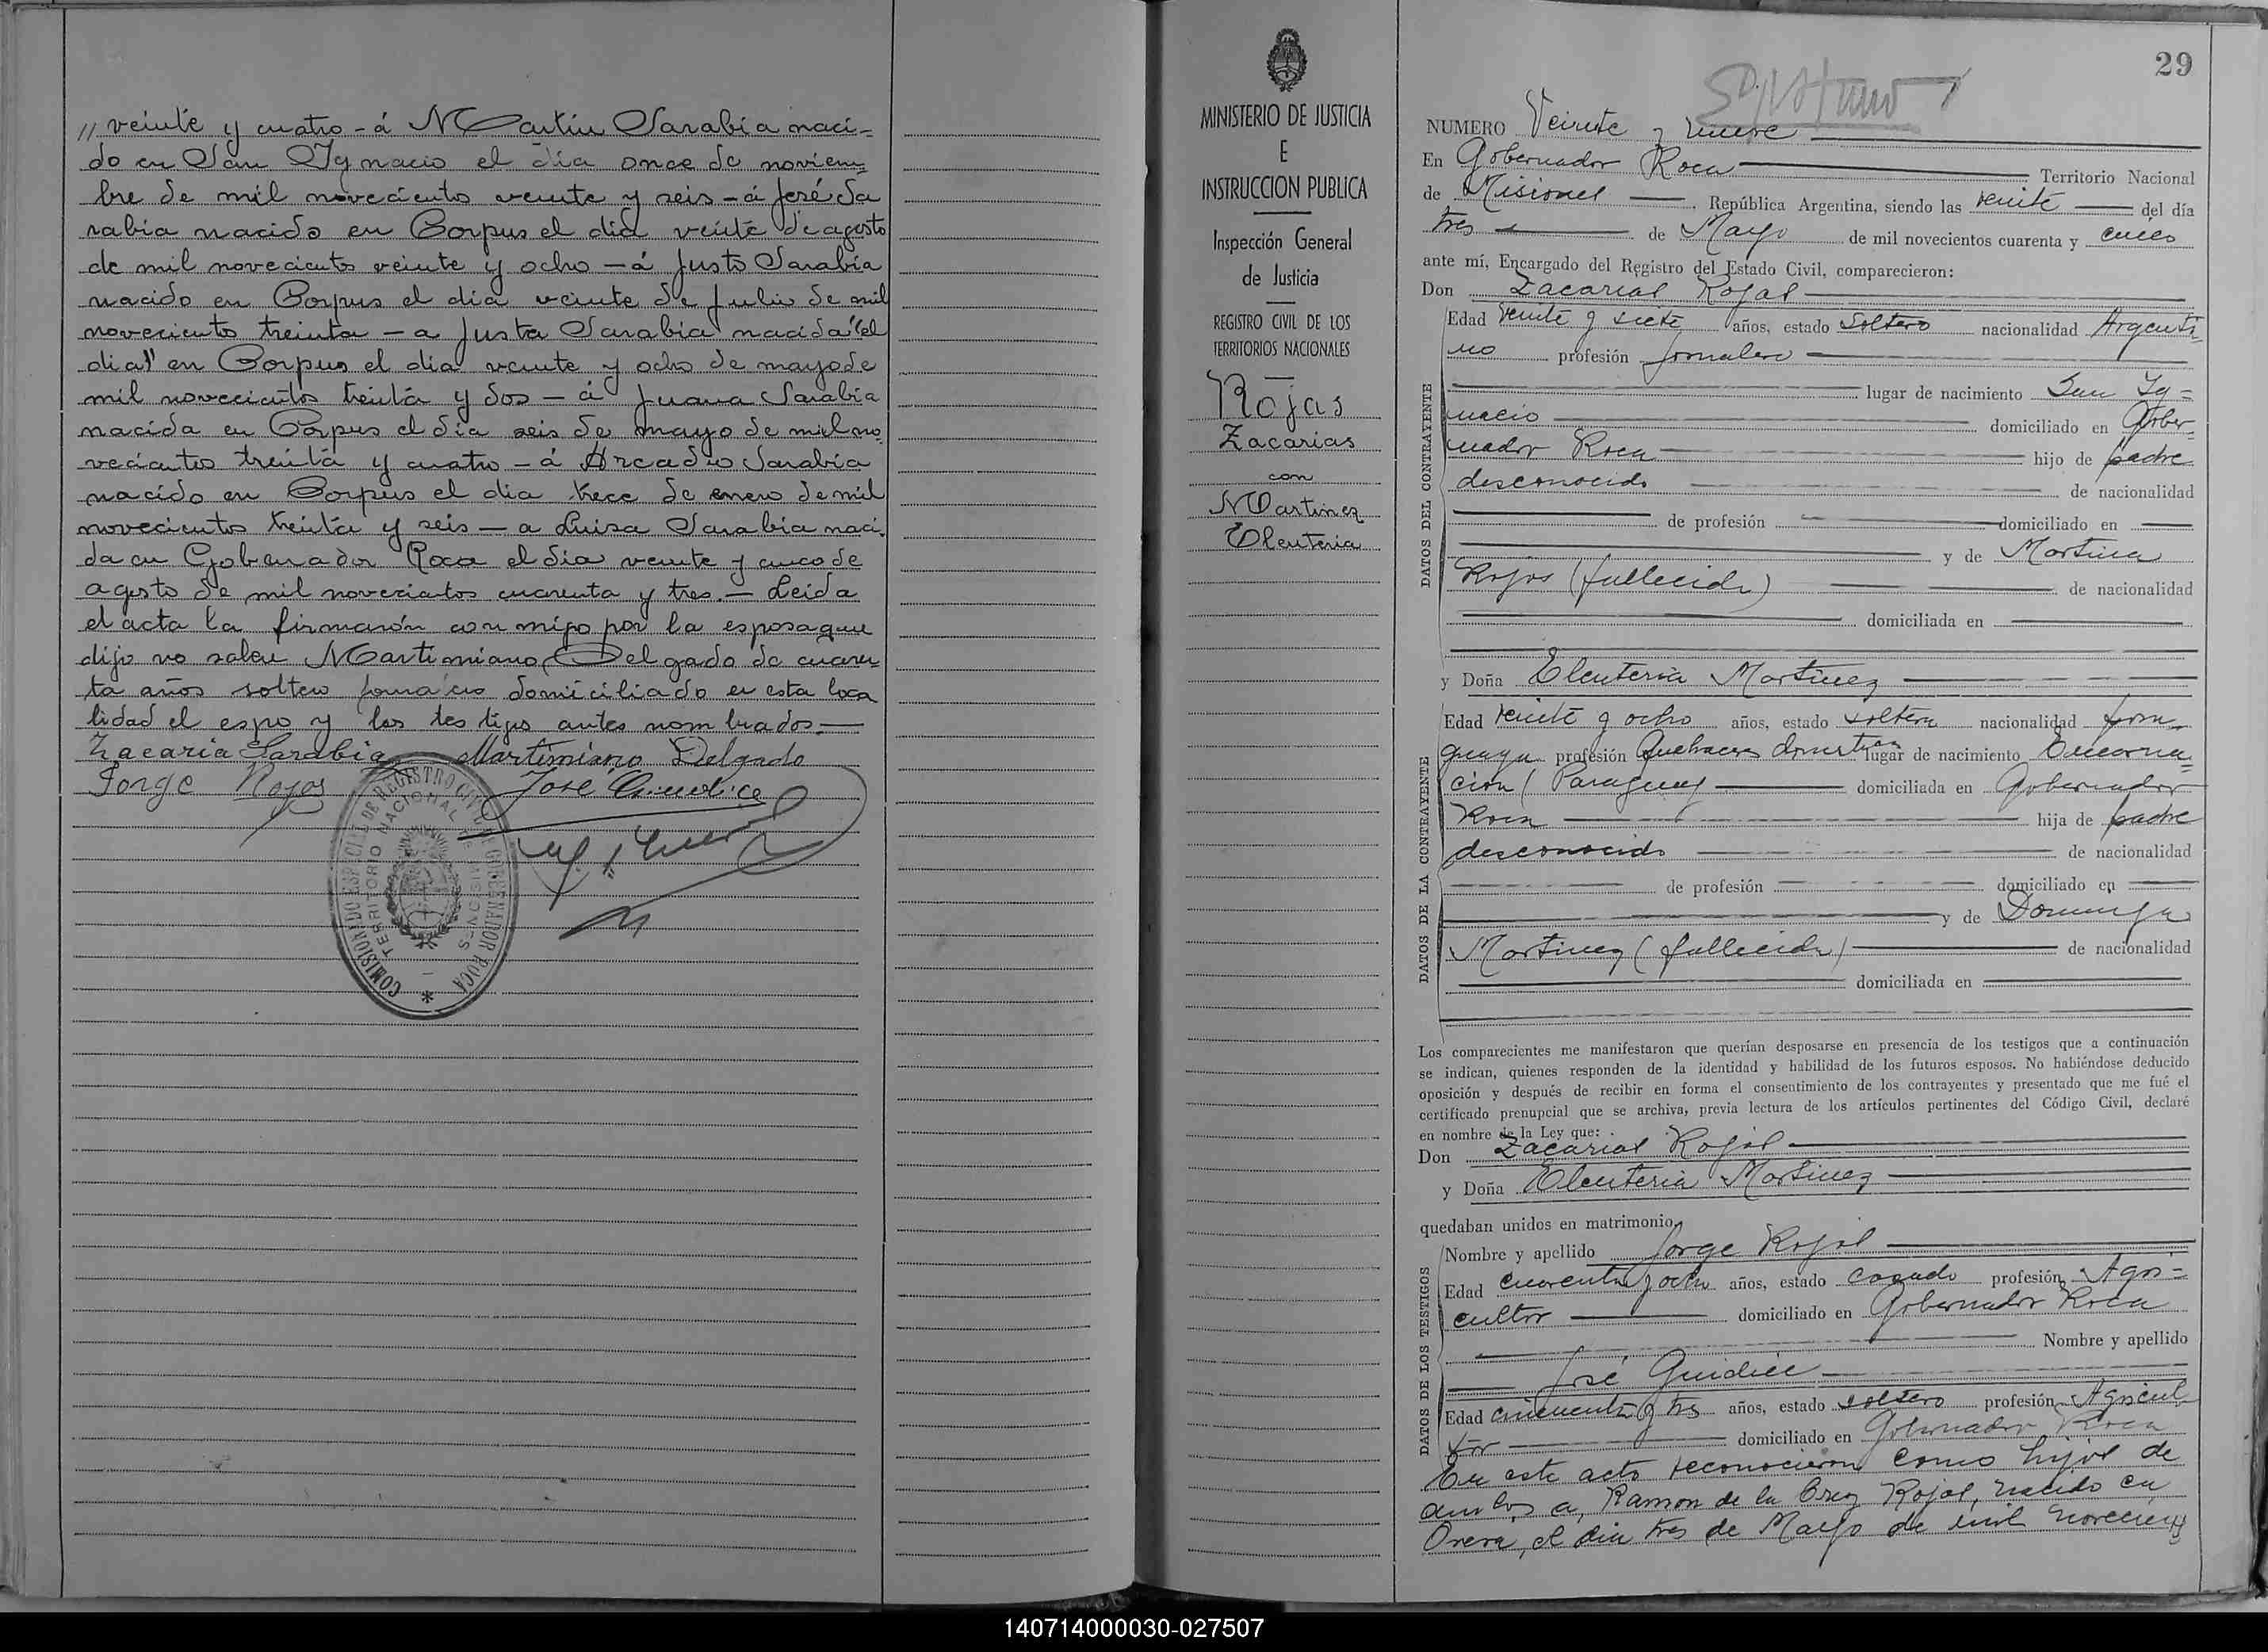 // veinte y cuatro - á Martin Sarabia naci=
do en San Ygnacio el dia once de noviem=
bre de mil novecientos veinte y seis - á José Sa
rabia nacido en Corpus el dia veinte de agosto
de mil novecientos veinte y ocho - á Justo Sarabia
nacido en Corpus el dia veinte de Julio de mil
noveciento treinta - a Justa Sarabia nacida "el
dia" en Corpus el dia veinte y ocho de mayo de
mil novecientos treinta y dos - á Juana Sarabia
nacida en Corpus el dia seis de mayo de mil no
vecientos treinta y cuatro - á Arcadio Sarabia
nacido en Corpus el dia trece de enero de mil
novecientos treinta y seis - a Luisa Sarabia naci
da en Gobernador Roca el dia veinte y cinco de
agosto de mil novecientos cuarenta y tres. - Leida
el acta la firmarón con migo por la esposa que
dijo no saber Martimiano Delgado de cuaren
ta años soltero jornalero domiciliado en esta loca
lidad el espo y los testigos antes nombrados. -
Zacaria Sarabia Martimiano Delgado
Jorge Rojas José
COMISIONADO ESPECIAL DE REGISTRO CIVIL DE GOBERNADOR ROCA
TERRITORIO NACIONAL DE MISIONES
MINISTERIO DE JUSTICIA
E
INSTRUCCION PUBLICA
Inspección General
de Justicia
REGISTRO CIVIL DE LOS
TERRITORIOS NACIONALES
Rojas
Zacarias
con
Martinez
Eleuteria
29
NUMERO Veinte y nueve
En Gobernador Roca Territorio Nacional
de Misiones República Argentina, siendo las veinte del día
tres de Mayo de mil novecientos cuarenta y cinco
ante mí, Encargado del Registro del Estado Civil, comparecieron:
Don Zacarias Rojas
DATOS DEL CONTRAYENTE
Edad veinte y siete años, estado Soltero nacionalidad Argenti
no profesión Jornalero
lugar de nacimiento San Ig=
nacio domiciliado en Gober
nador Roca hijo de padre
desconocido de nacionalidad
de profesión domiciliado en
y de Martina
Rojas (fallecida) de nacionalidad
domiciliada en
y Doña Eleuteria Martinez
DATOS DE LA CONTRAYENTE
Edad veinte y ocho años, estado soltera nacionalidad para
guaya profesión Quehaceres domesticos lugar de nacimiento Encarna=
cion (Paraguay) domiciliada en Gobernador
Roca hija de padre
desconocido de nacionalidad
de profesión domiciliado en
y de Dominga
Martinez (fallecida) de nacionalidad
domiciliada en
Los comparecientes me manifestaron que querían desposarse en presencia de los testigos que a continuación
se indican, quienes responden de la identidad y habilidad de los futuros esposos. No habiéndose deducido
oposición y después de recibir en forma el consentimiento de los contrayentes y presentado que me fué el
certificado prenupcial que se archiva, previa lectura de los artículos pertinentes del Código Civil, declaré
en nombre de la Ley que:
Don Zacarias Rojas
y Doña Eleuteria Martinez
quedaban unidos en matrimonio
DATOS DE LOS TESTIGOS
Nombre y apellido Jorge Rojas
Edad cuarenta y ocho años, estado casado profesión Agri=
cultor domiciliado en Gobernador Roca
Nombre y apellido
José
Edad cincuenta y tres años, estado soltero profesión Agricul
tor domiciliado en Gobernador Roca
En este acto reconocieron como hijos de
ambos a, Ramon de la Cruz Rojas, nacido en
el dia tres de Mayo de mil novecien